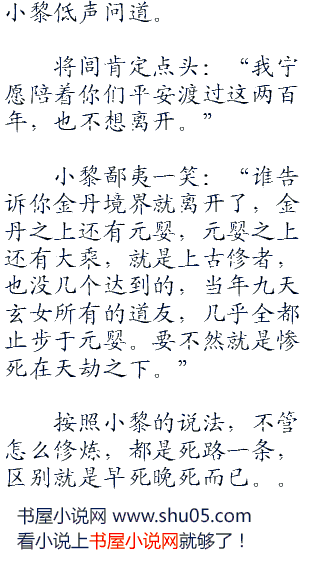 小黎低声问道。
将闾肯定点头：“我宁
愿陪着你们平安渡过这两百
年，也不想离开。”
小黎鄙夷一笑：“谁告
诉你金丹境界就离开了，金
丹之上还有元婴，元婴之上
还有大乘，就是上古修者，
也没几个达到的，当年九天
玄女所有的道友，几乎全都
止步于元婴。要不然就是惨
死在天劫之下。”
按照小黎的说法，不管
怎么修炼，都是死路一条，
区别就是早死晚死而已。。
书屋小说网 www.shu05.com
看小说上书屋小说网就够了！